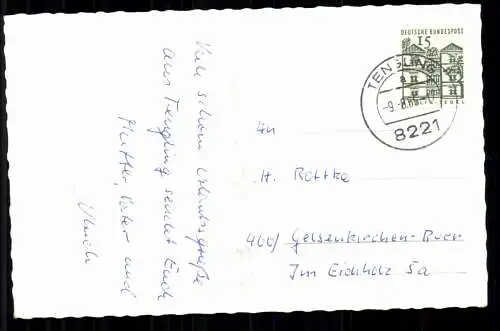 Viele schöne Urlaubsgrüße
aus Tengling sendet Euch
Mutter, Vater und
Ulrich
DEUTSCHE BUNDESPOST
15
BERLIN-TEGEL
TENGLING
-9.-8.66-17
8221
An
H. Rottke
4660 Gelsenkirchen-Buer
Im Eichholz 5a